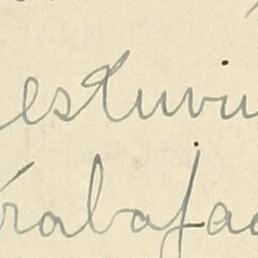 estuviu
rabajaa